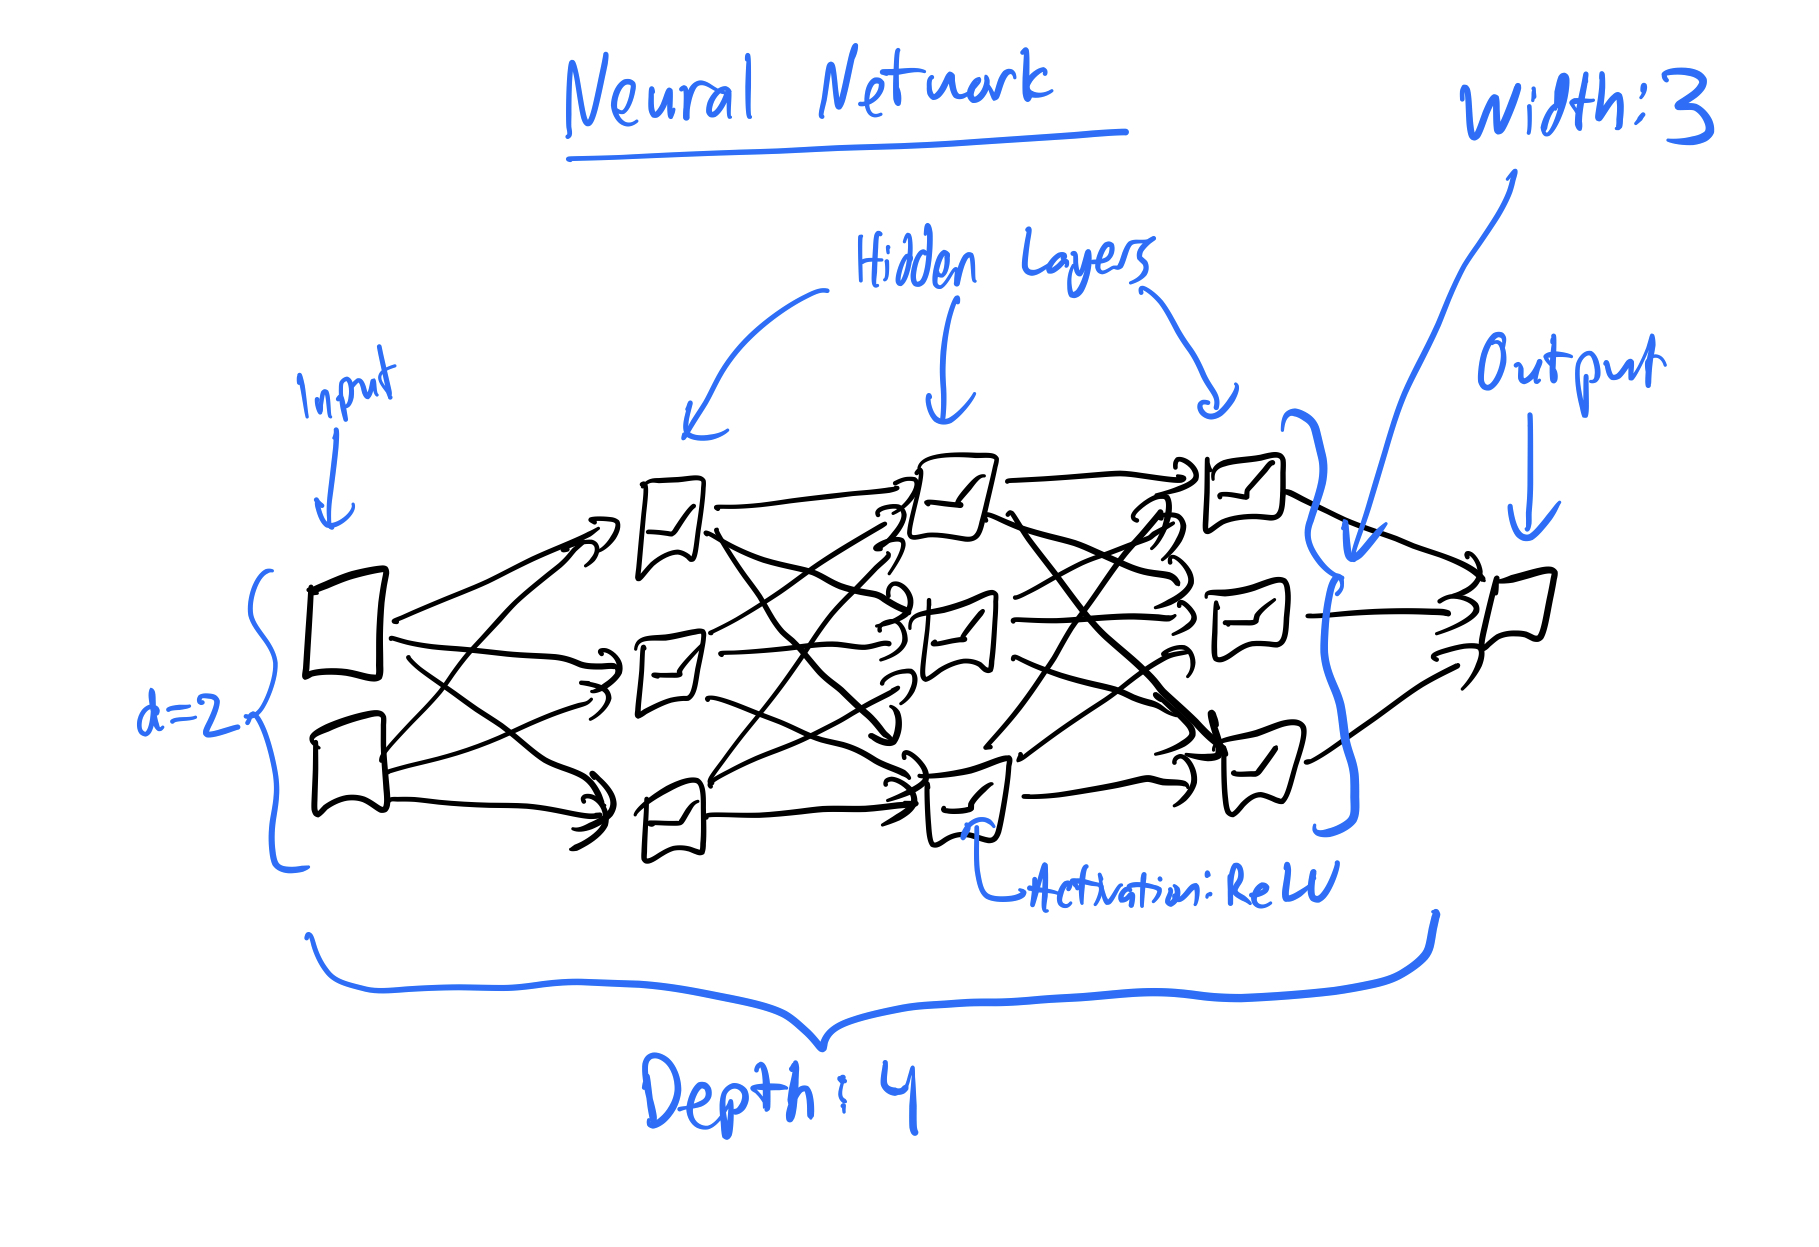 Neural Network
Width: 3
Hidden Layers
Input
Output
d=2
Activation: ReLU
Depth: 4